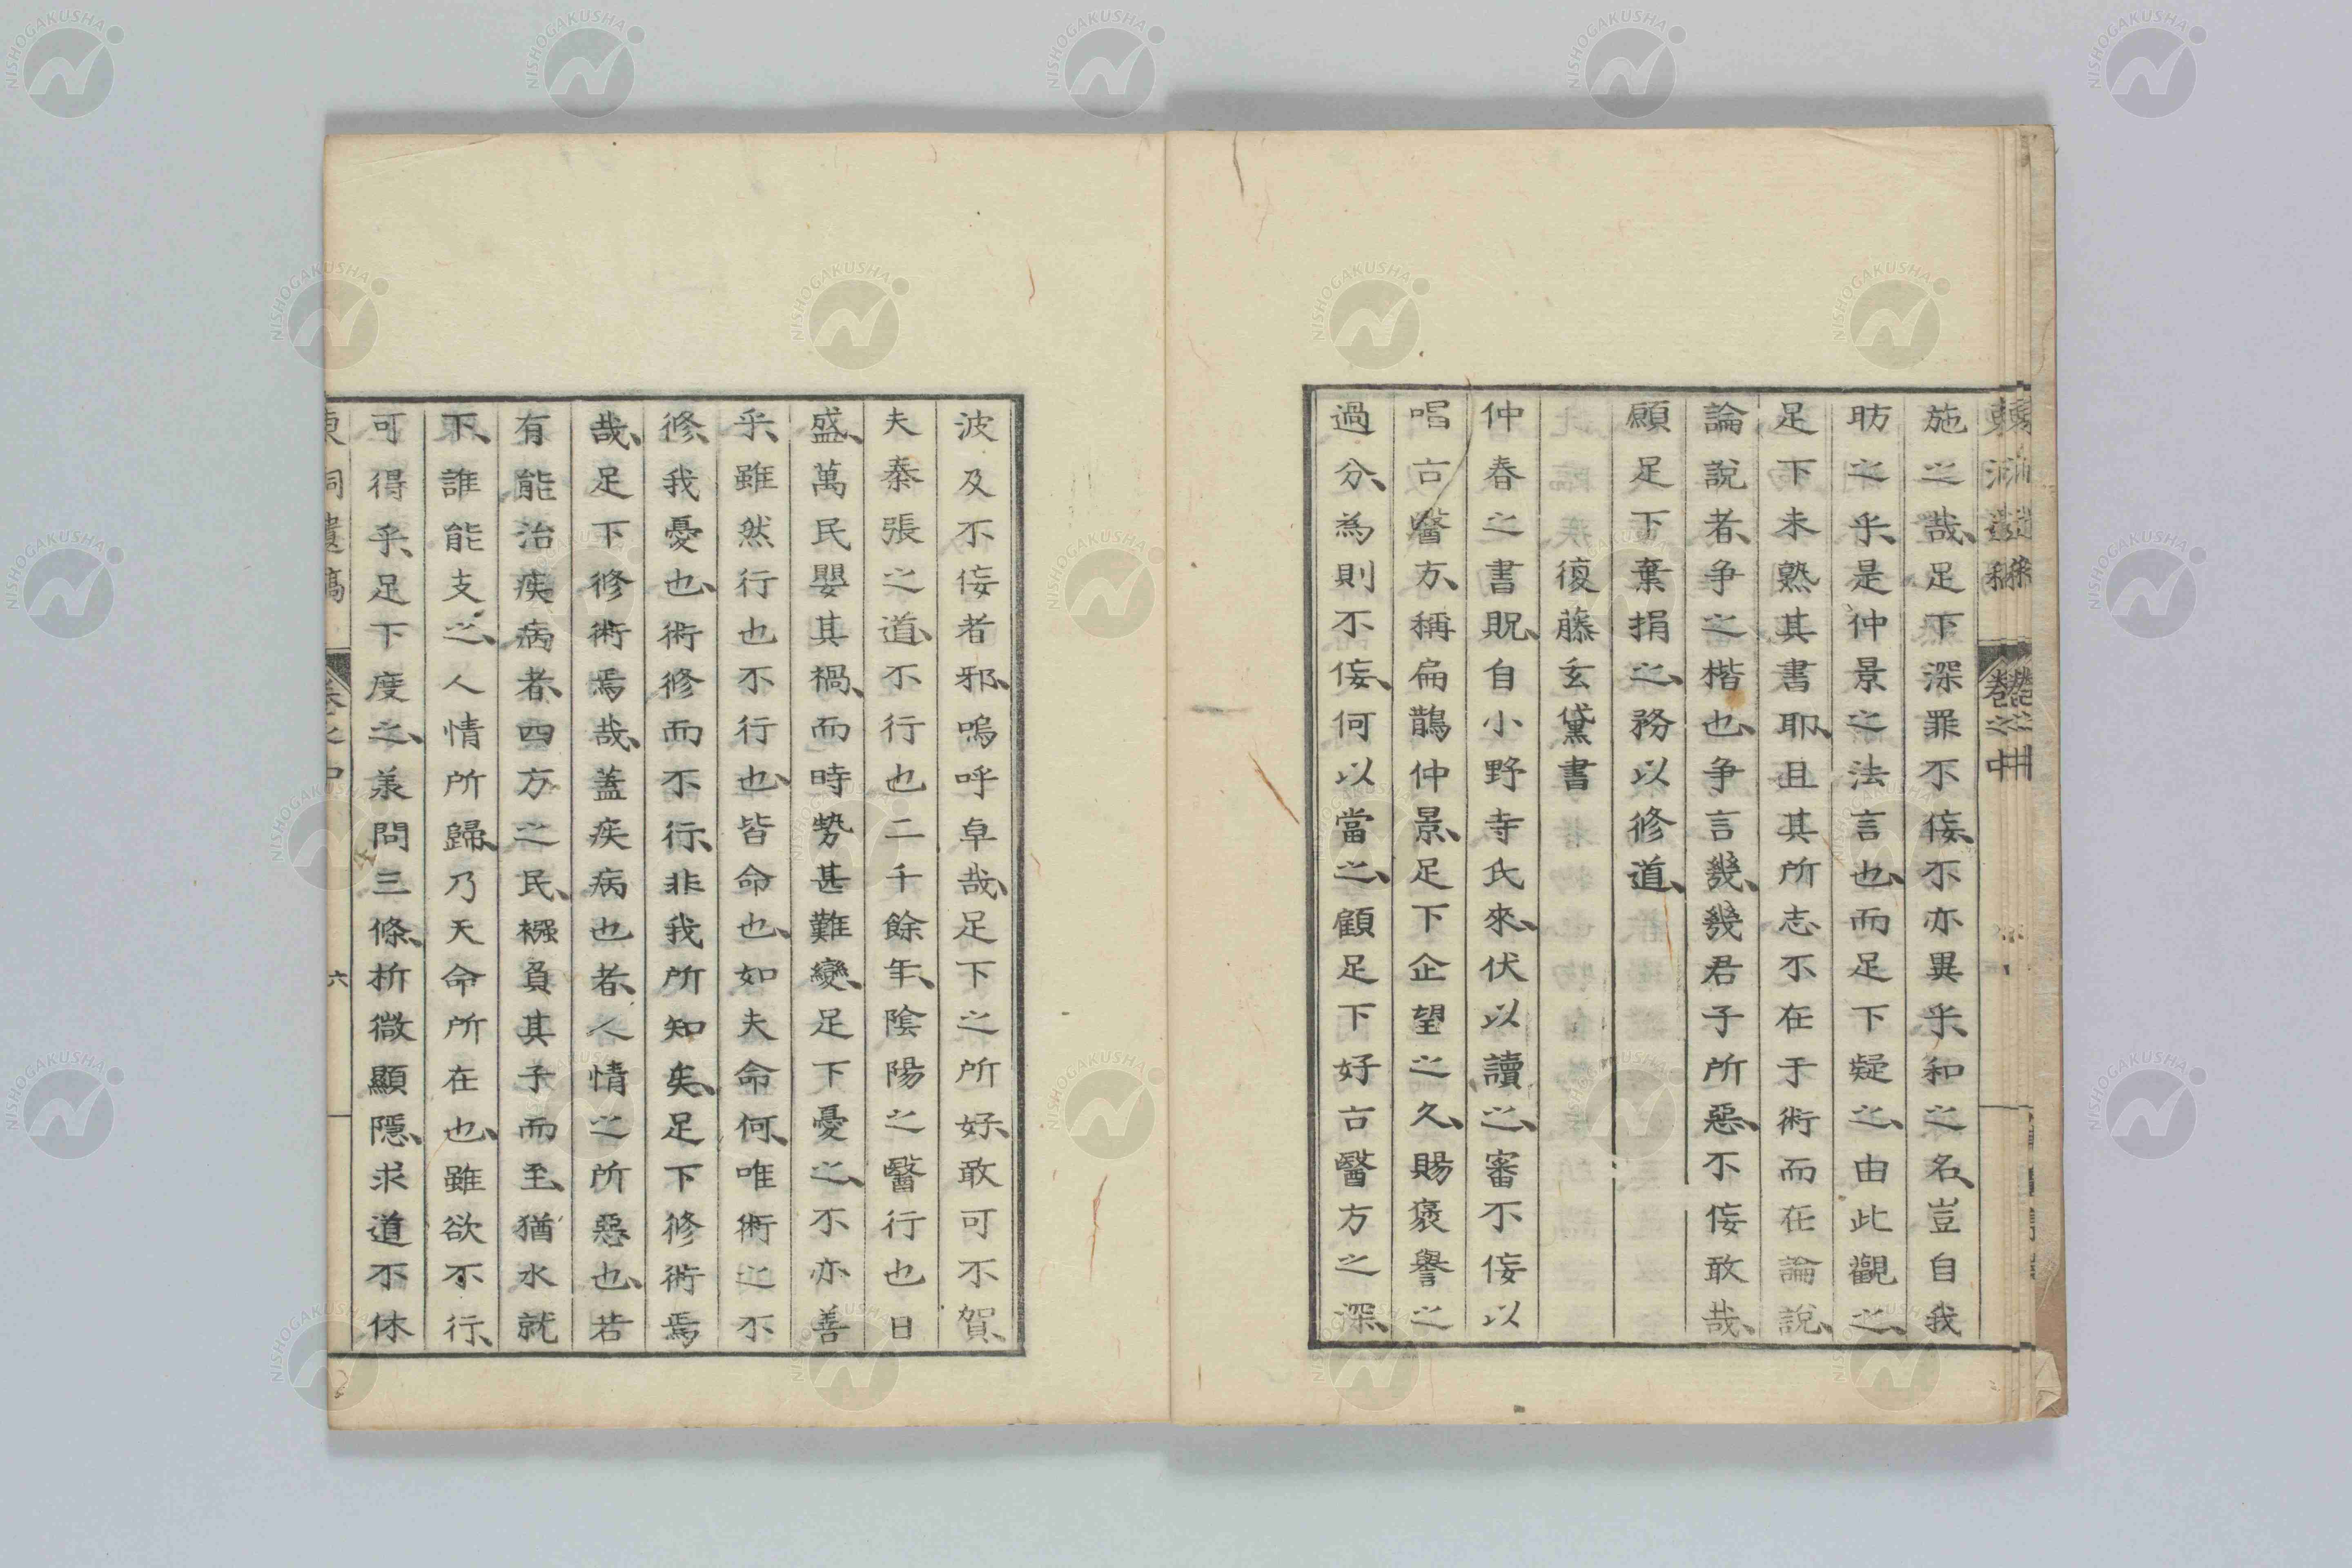 施之哉、足下深罪不佞、不亦異乎、和之名、豈自我
昉之乎、是仲景之法言也、而足下疑之、由此觀之、
足下未熟其書耶、且其所志不在于術而在論說、
論說者、爭之楷也、爭言幾、幾君子所惡、不佞敢哉、
願足下棄捐之、務以修道、
復藤玄黛書
仲春之書貺、自小野寺氏來、伏以讀之、審不佞以
唱古醫方、稱扁鵲仲景、足下企望之久、賜褒譽之
過分、為則不佞、何以當之、顧足下好古醫方之深、
波及不佞者邪、嗚呼卓哉、足下之所好、敢可不賀、
夫秦張之道、不行也二千餘年、陰陽之醫行也日
盛、萬民嬰其禍、而時勢甚難變、足下憂之、不亦善
乎、雖然行也不行也、皆命也、如夫命何、唯術之不
修、我憂也、術修而不行、非我所知矣、足下修術焉
哉、足下修術焉哉、蓋疾病也者、人情之所惡也、若
有能治疾病者、四方之民、襁負其子而至、猶水就
下、誰能支之、人情所歸、乃天命所在也、雖欲不行、
可得乎、足下度之、羕問三條、析微顯隱、求道不休
東洞遺稿
卷之中
六
NISHOGAKUSHA